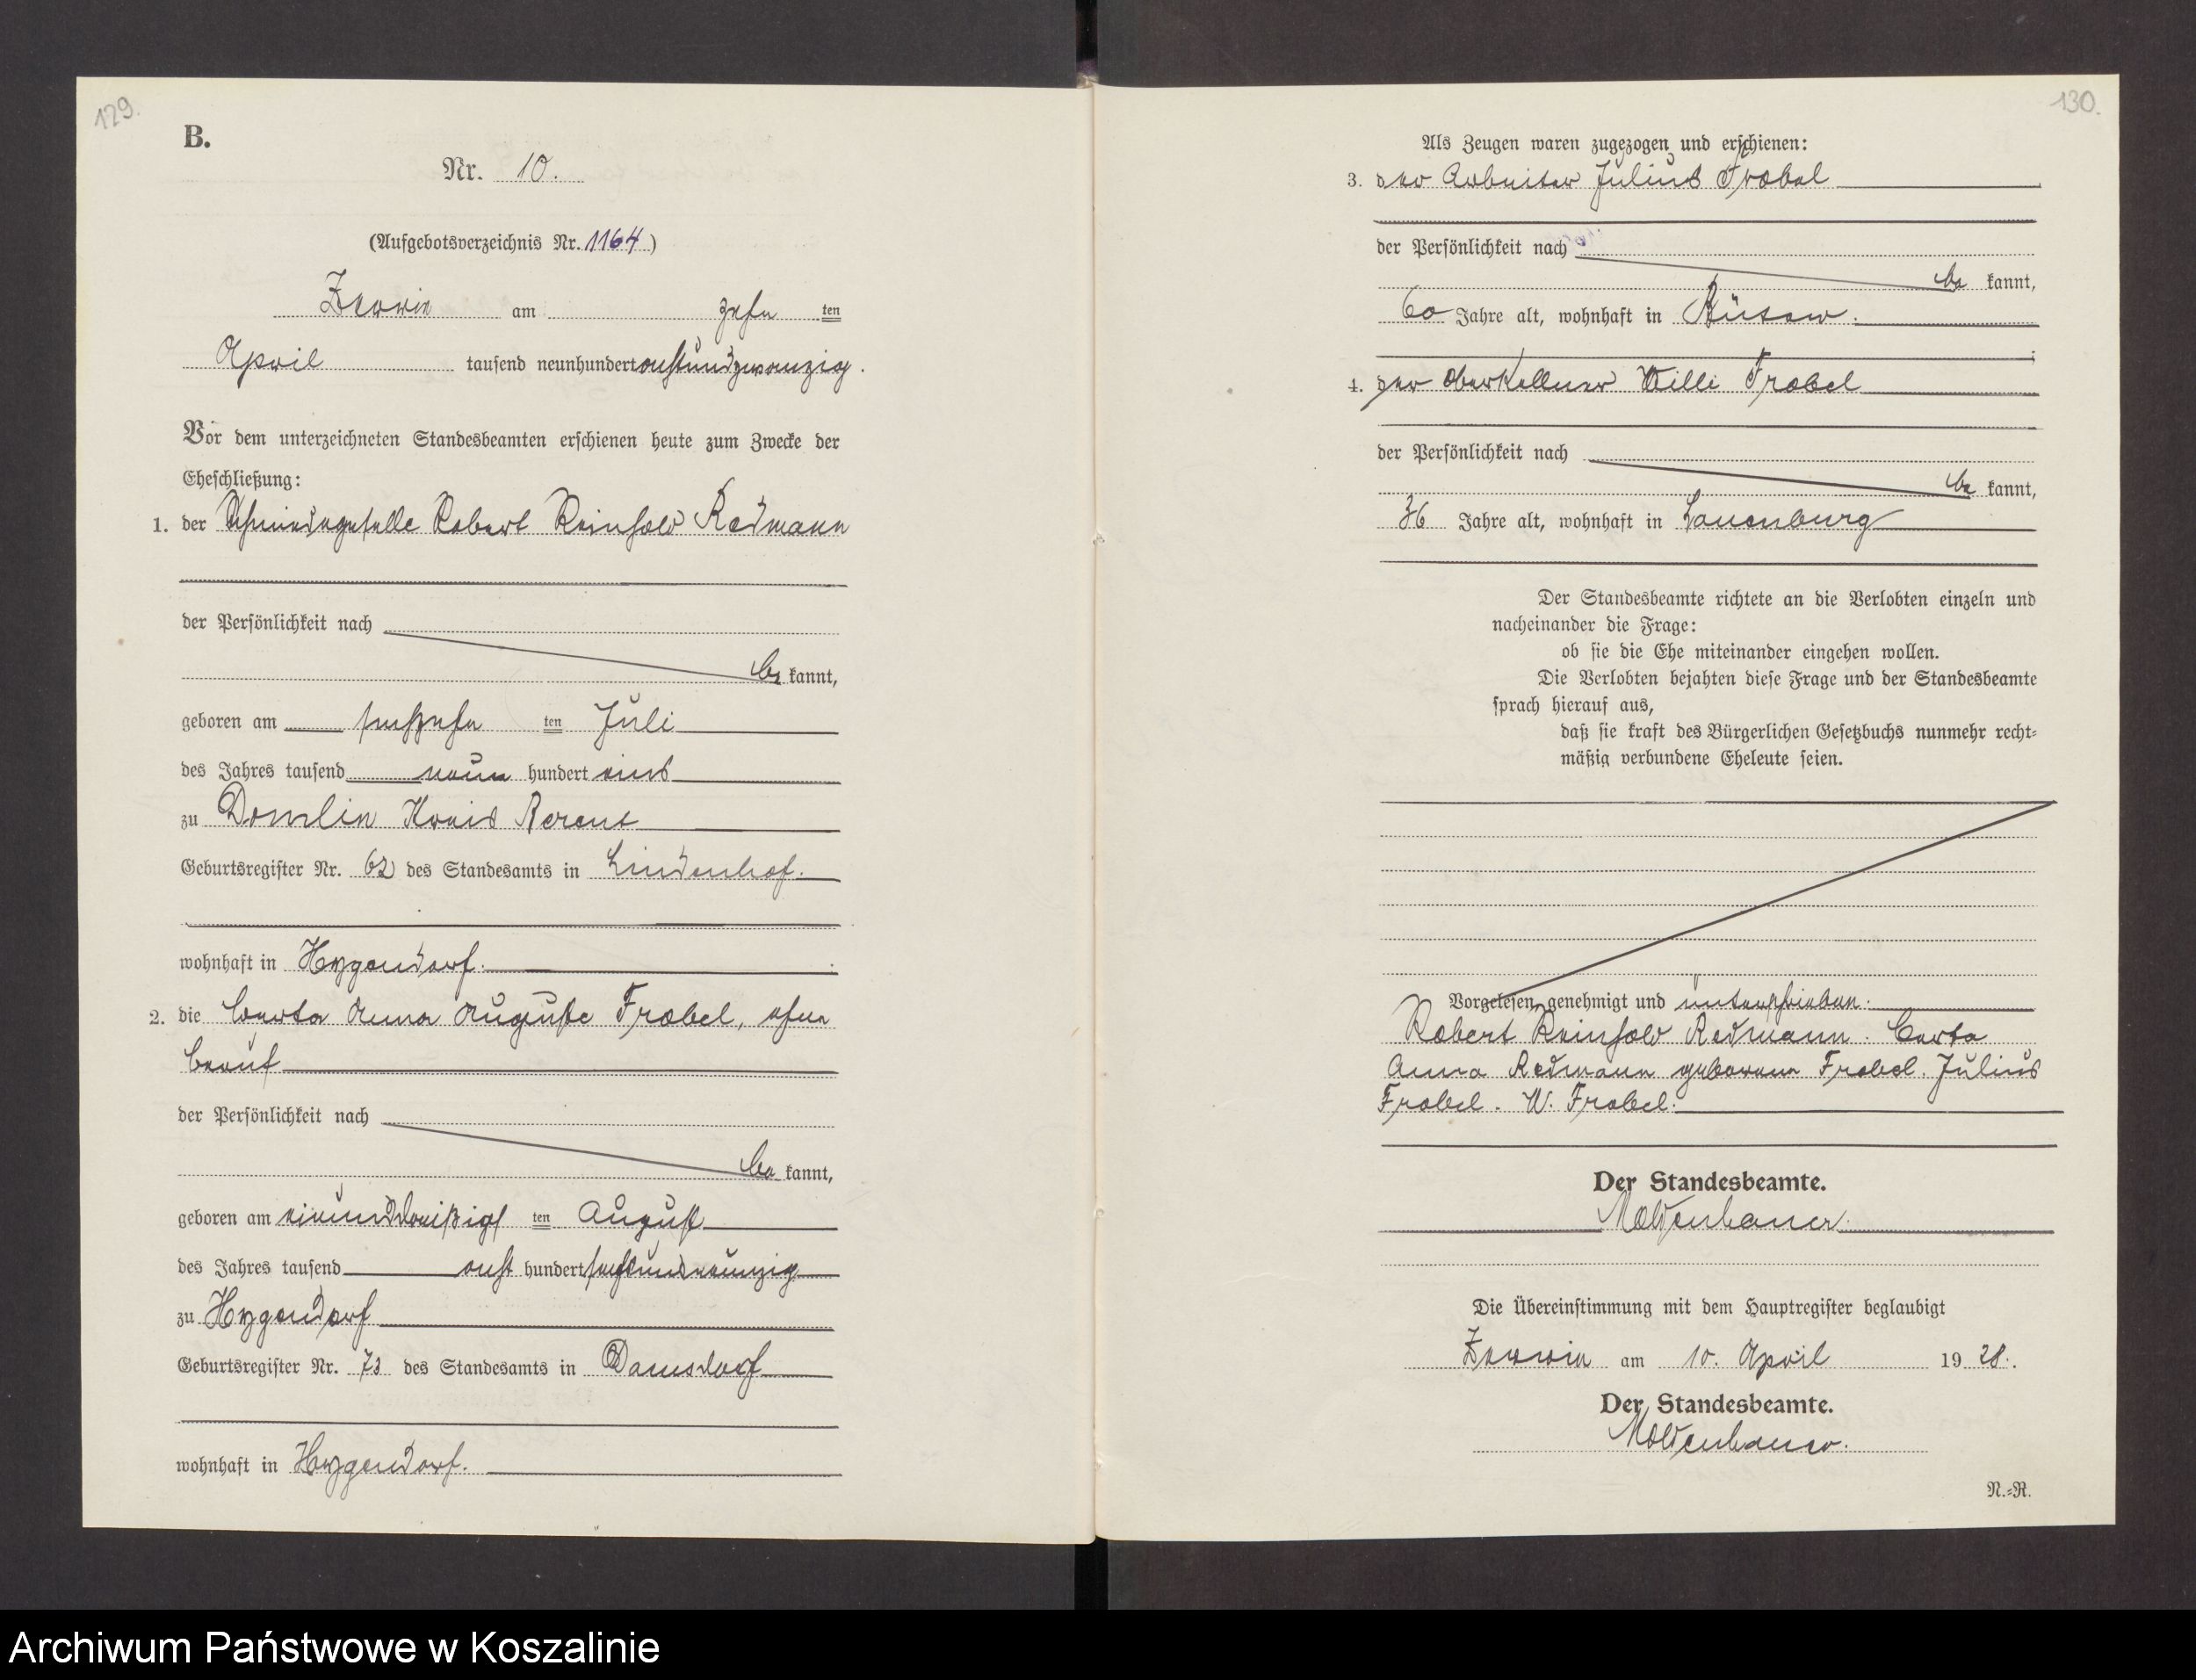 129.
B.
Nr. 10.
(Aufgebotsverzeichnis Nr. 1164)
Zerrin am zehn ten
April tausend neunhundert achtundzwanzig.
Vor dem unterzeichneten Standesbeamten erschienen heute zum Zwecke der
Eheschließung:
1. der Schmiedegeselle Robert Reinhold Redmann
der Persönlichkeit nach
be kannt,
geboren am sechzehn ten Juli
des Jahres tausend neun hundert eins
zu Domlin Kreis Berent
Geburtsregister Nr. 62 des Standesamts in Lindenhof.
wohnhaft in Hygendorf.
2. die Berta Anna Auguste Frobel, ohne
Beruf
der Persönlichkeit nach
be kannt,
geboren am einunddreißigs ten August
des Jahres tausend acht hundert sechsundneunzig
zu Hygendorf
Geburtsregister Nr. 73 des Standesamts in Damsdorf
wohnhaft in Hygendorf.
130.
Als Zeugen waren zugezogen und erschienen:
3. der Arbeiter Julius Frobel
der Persönlichkeit nach
be kannt,
60 Jahre alt, wohnhaft in Bütow.
4. der Oberkellner Willi Frobel
der Persönlichkeit nach
be kannt,
36 Jahre alt, wohnhaft in Lauenburg
Der Standesbeamte richtete an die Verlobten einzeln und
nacheinander die Frage:
ob sie die Ehe miteinander eingehen wollen.
Die Verlobten bejahten diese Frage und der Standesbeamte
sprach hierauf aus,
daß sie kraft des Bürgerlichen Gesetzbuchs nunmehr recht-
mäßig verbundene Eheleute seien.
Vorgelesen, genehmigt und unterschrieben.
Robert Reinhold Redmann. Berta
Anna Redmann geborene Frobel. Julius
Frobel. W. Frobel.
Der Standesbeamte.
Moldenhauer.
Die Übereinstimmung mit dem Hauptregister beglaubigt
Zerrin am 10. April 19 28.
Der Standesbeamte.
Moldenhauer.
N.-R.
Archiwum Państwowe w Koszalinie